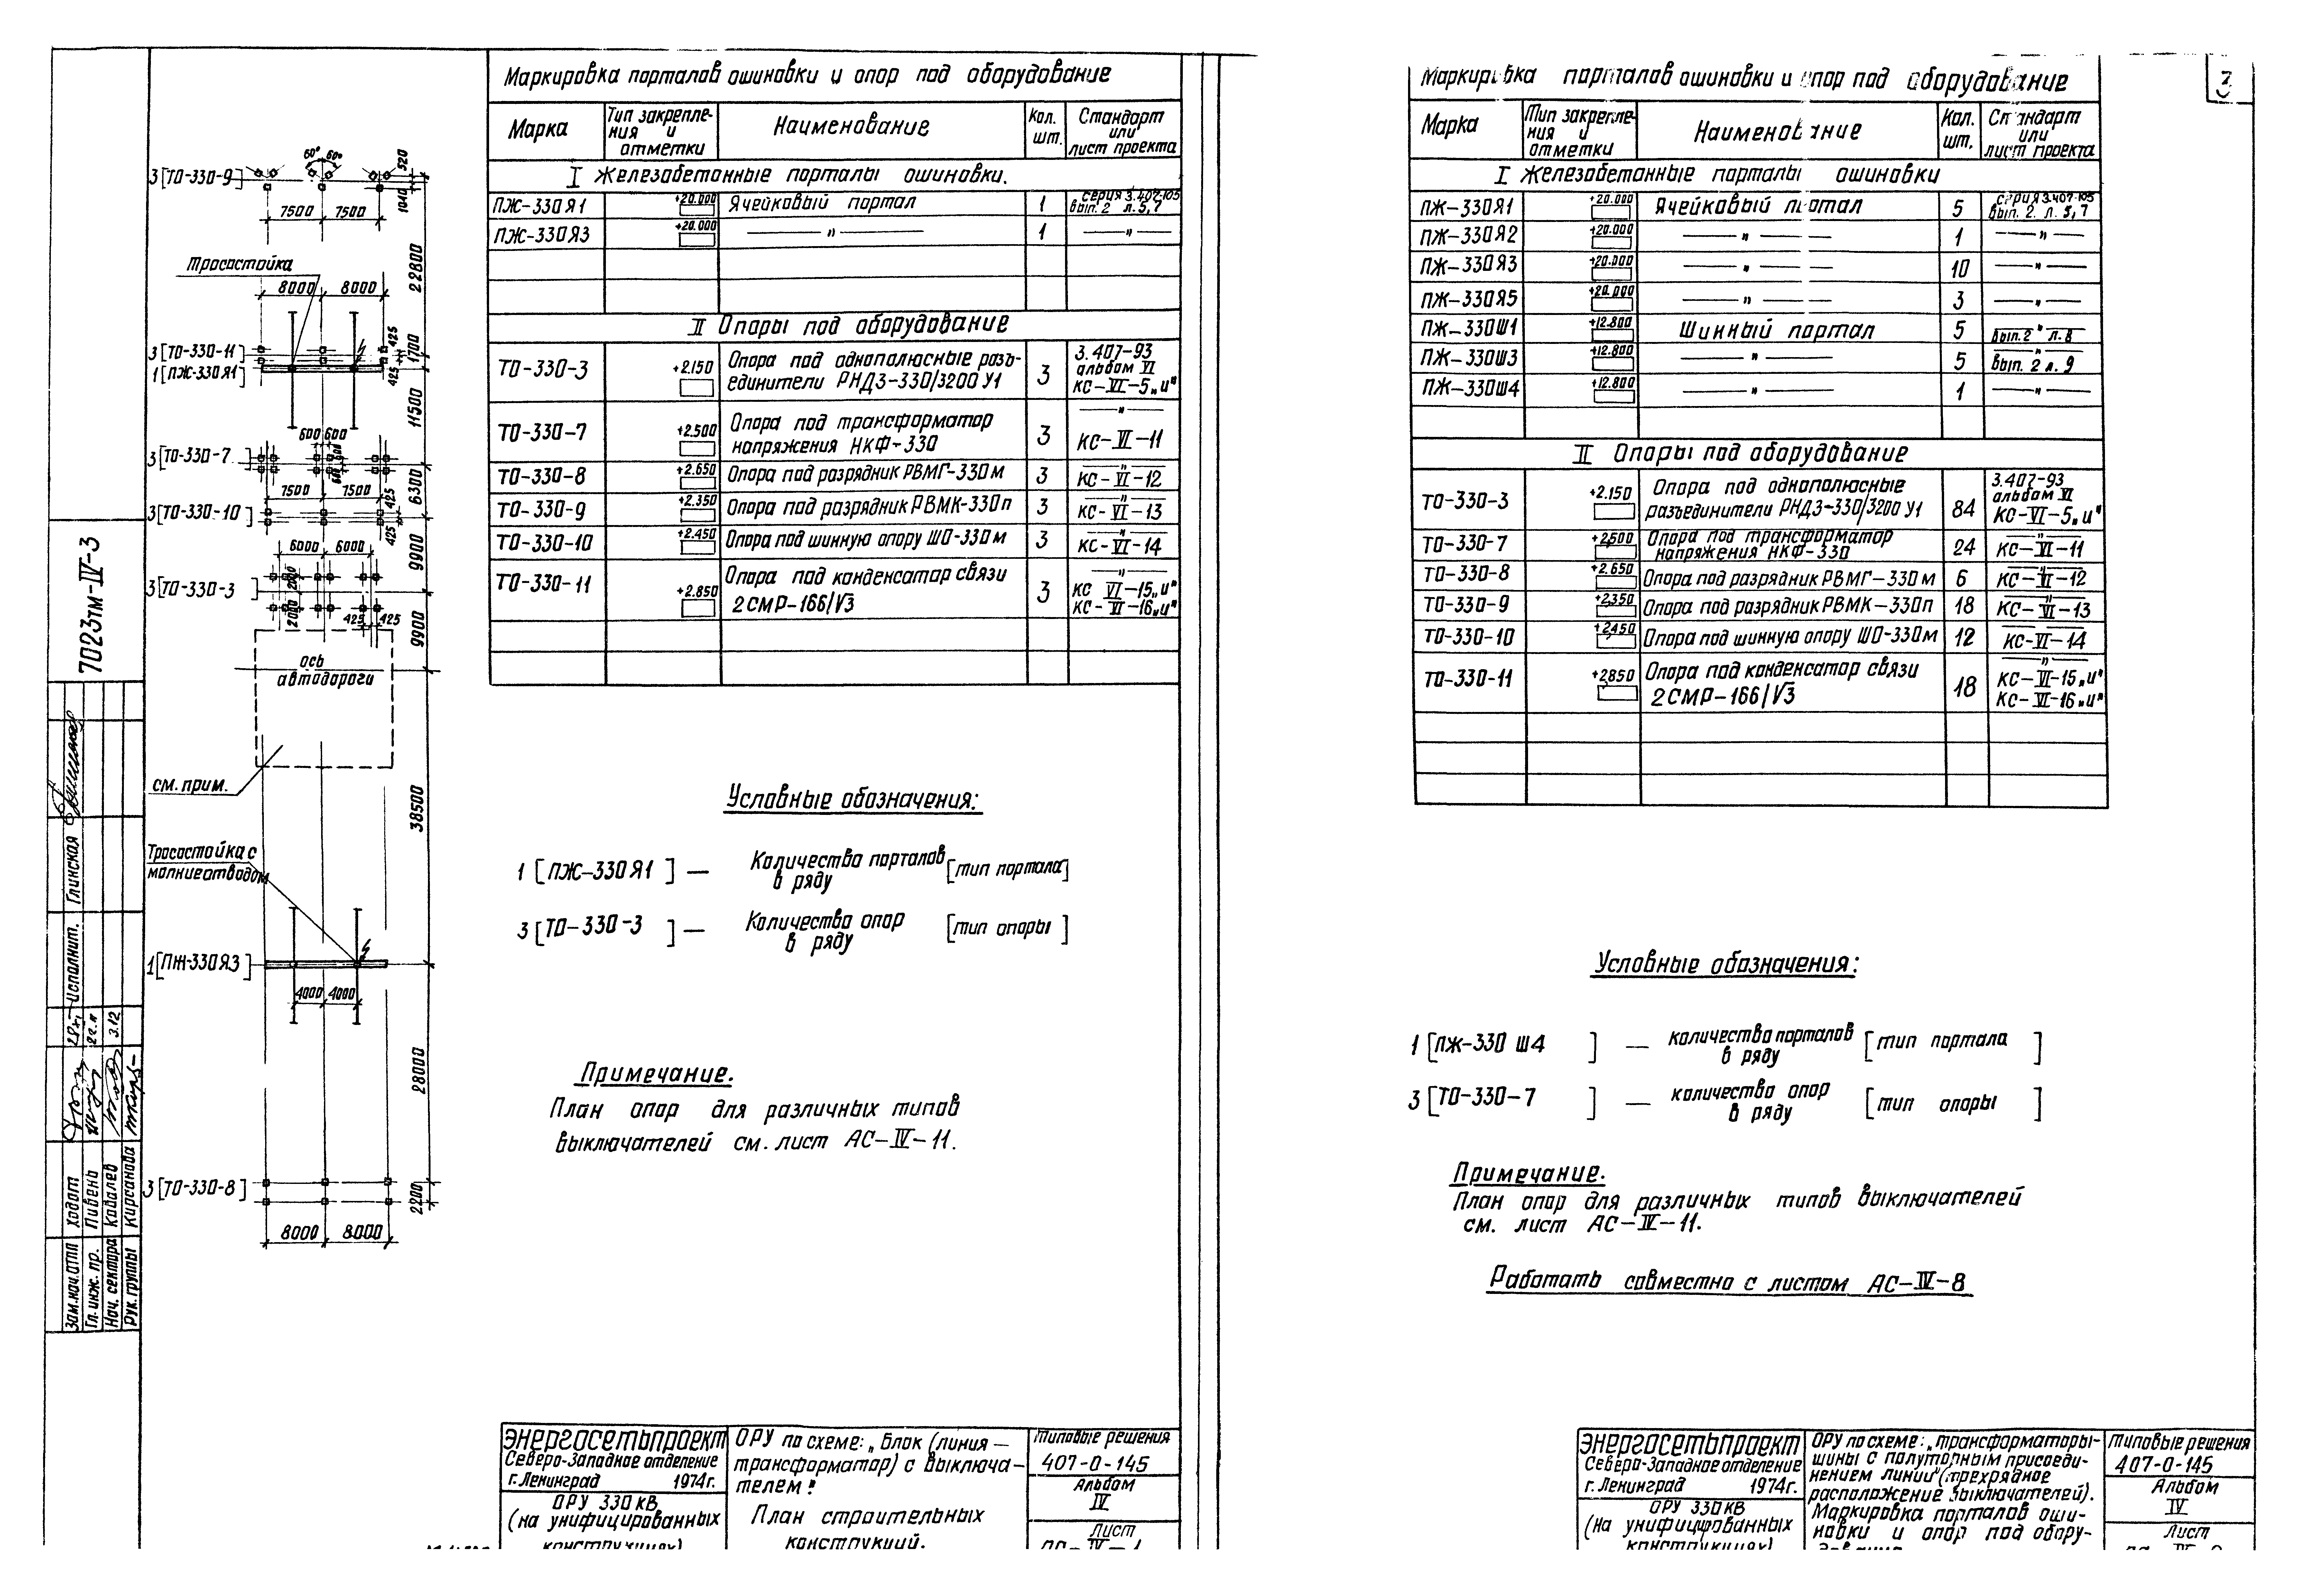 Маркировка порталов ошиновки и опор под оборудование
Марка
Тип закрепле-
ния и
отметки
Наименование
Кол.
шт.
Стандарт
или
лист проекта
I Железобетонные порталы ошиновки.
ПЖ-330Я1 +20.000 Ячейковый портал 1 серия 3.407-105
вып. 2 л. 5, 7
ПЖ-330Я3 +20.000 — " — 1 — " —
II Опоры под оборудование
ТО-330-3 +2.150 Опора под однополюсные разъ-
единители РНДЗ-330/3200 У1 3
3.407-93
альбом VI
КС-VI-5„и"
ТО-330-7 +2.500 Опора под трансформатор
напряжения НКФ-330 3
— " —
КС-VI-11
ТО-330-8 +2.650 Опора под разрядник РВМГ-330м 3 — " —
КС-VI-12
ТО-330-9 +2.350 Опора под разрядник РВМК-330п 3 — " —
КС-VI-13
ТО-330-10 +2.450 Опора под шинную опору ШО-330м 3 — " —
КС-VI-14
ТО-330-11 +2.850 Опора под конденсатор связи
2СМР-166/√3 3
— " —
КС VI-15„и"
КС-VI-16„и"
3[ТО-330-9]
60° 60°
520
1040
7500 7500
22800
Тросостойка
8000 8000
425
1700
3[ТО-330-11]
1[ПЖ-330Я1]
425
11500
600 600
3[ТО-330-7]
600 900
7500 7500
425
6300
3[ТО-330-10]
425
6000 6000
9900
2000
3[ТО-330-3]
2000
425 425
9900
ось
автодороги
см. прим.
38500
Тросостойка с
молниеотводом
1[ПЖ-330Я3]
4000 4000
28000
3[ТО-330-8]
2200
8000 8000
7023тм-IV-3
Исполнит. Глинская
Зам.нач.ОТП Ходот
Гл. инж. пр. Пивень
Нач. сектора Ковалев 3.12
Рук. группы Кирсанова
Условные обозначения:
1 [ПЖ-330Я1] — Количество порталов
в ряду [тип портала]
3 [ТО-330-3] — Количество опор
в ряду [тип опоры]
Примечание.
План опор для различных типов
выключателей см. лист АС-IV-11.
ЭНЕРГОСЕТЬПРОЕКТ
Северо-Западное отделение
г. Ленинград 1974г.
ОРУ 330 кВ
(на унифицированных
конструкциях)
ОРУ по схеме: „Блок (линия —
трансформатор) с выключа-
телем"
План строительных
конструкций.
Типовые решения
407-0-145
Альбом
IV
Лист
Маркировка порталов ошиновки и опор под оборудование
3
Марка
Тип закрепле-
ния и
отметки
Наименование
Кол.
шт.
Стандарт
или
лист проекта
I Железобетонные порталы ошиновки
ПЖ-330Я1 +20.000 Ячейковый портал 5 серия 3.407-105
вып. 2. л. 5, 7
ПЖ-330Я2 +20.000 — " — 1 — " —
ПЖ-330Я3 +20.000 — " — 10 — " —
ПЖ-330Я5 +20.000 — " — 3 — " —
ПЖ-330Ш1 +12.800 Шинный портал 5 — " —
вып. 2 л. 8
ПЖ-330Ш3 +12.800 — " — 5 — " —
вып. 2 л. 9
ПЖ-330Ш4 +12.800 — " — 1 — " —
II Опоры под оборудование
ТО-330-3 +2.150 Опора под однополюсные
разъединители РНДЗ-330/3200 У1 84
3.407-93
альбом VI
КС-VI-5„и"
ТО-330-7 +2.500 Опора под трансформатор
напряжения НКФ-330 24 КС-VI-11
ТО-330-8 +2.650 Опора под разрядник РВМГ-330м 6 — " —
КС-VI-12
ТО-330-9 +2.350 Опора под разрядник РВМК-330п 18 — " —
КС-VI-13
ТО-330-10 +2.450 Опора под шинную опору ШО-330м 12 — " —
КС-VI-14
ТО-330-11 +2.850 Опора под конденсатор связи
2СМР-166/√3 18
— " —
КС-VI-15„и"
КС-VI-16„и"
Условные обозначения:
1 [ПЖ-330 Ш4] — количество порталов
в ряду [тип портала]
3 [ТО-330-7] — количество опор
в ряду [тип опоры]
Примечание.
План опор для различных типов выключателей
см. лист АС-IV-11.
Работать совместно с листом АС-IV-8
ЭНЕРГОСЕТЬПРОЕКТ
Северо-Западное отделение
г. Ленинград 1974г.
ОРУ 330 кВ
(на унифицированных
конструкциях)
ОРУ по схеме: „трансформаторы-
шины с полуторным присоеди-
нением линий" (трехрядное
расположение выключателей).
Маркировка порталов оши-
новки и опор под обору-
дование
Типовые решения
407-0-145
Альбом
IV
Лист